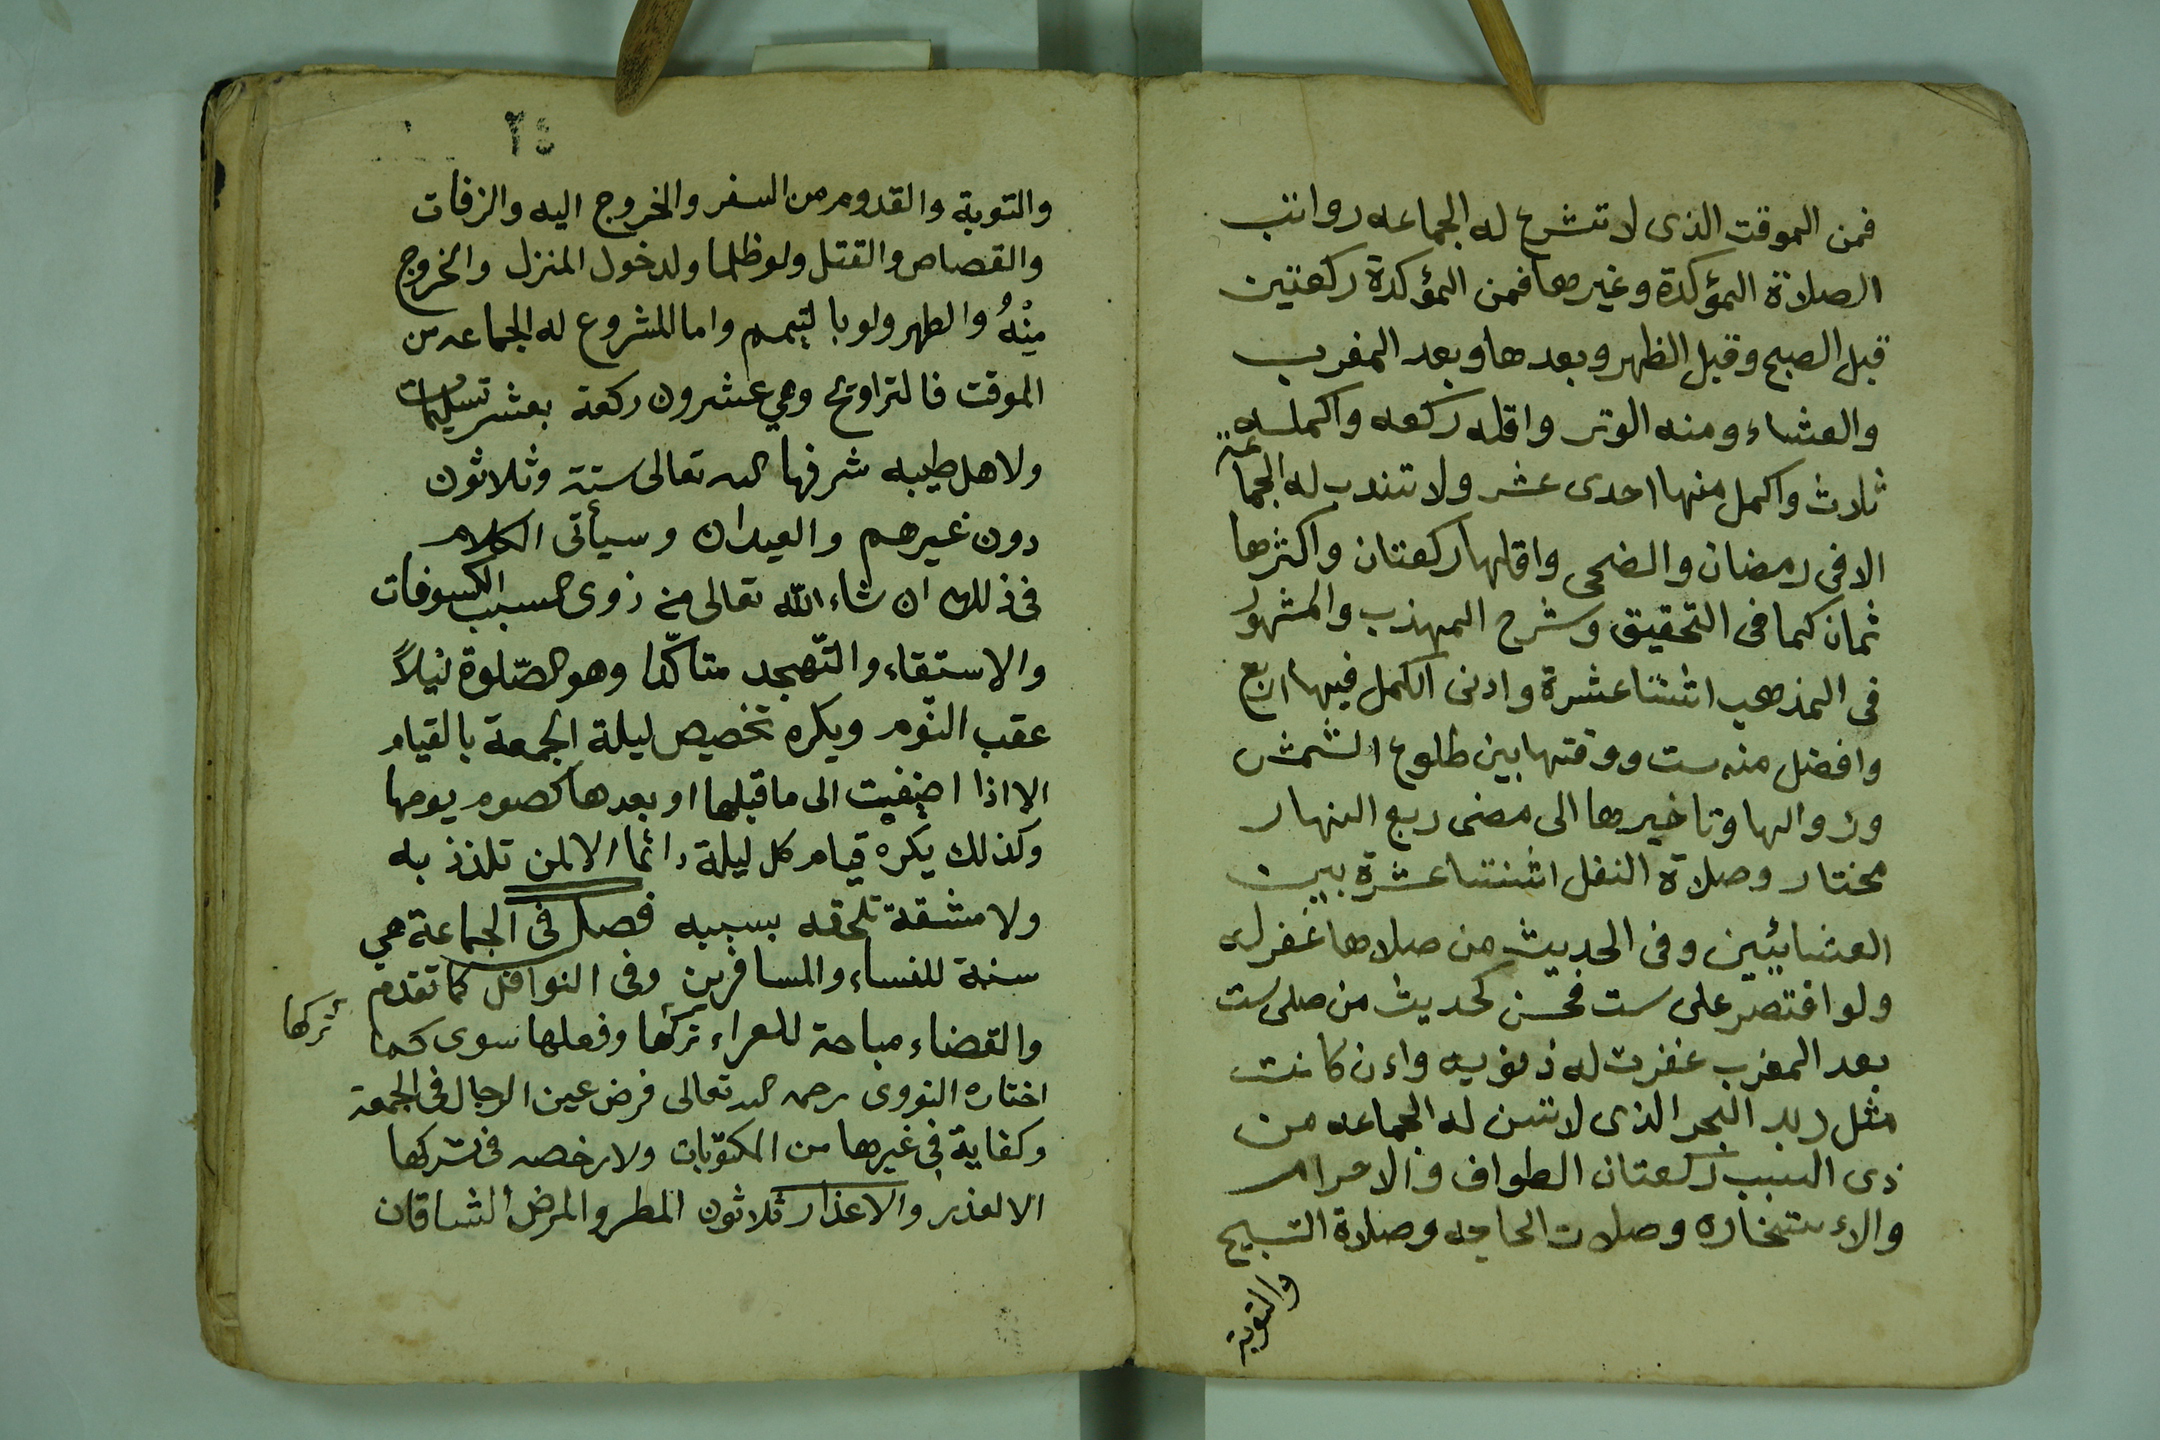 فمن الموقت الذى لا تشرع له الجماعه رواتب
الصلاة المؤكدة وغيرها فمن المؤكدة ركعتين
قبل الصبح وقبل الظهر وبعدها وبعد المغرب
والعشاء ومنه الوتر واقله ركعه واكمله
ثلاث واكمل منها احدى عشر ولا تندب له الجماعة
الا فى رمضان والضحى واقلها ركعتان واكثرها
ثمان كما فى التحقيق وشرح المهذب والمشهور
فى المذهب اثنتا عشرة وادنى الكمل فيها اربع
وافضل منه ست ووقتها بين طلوع الشمش
وزوالها وتاخيرها الى مضى ربع النهار
مختار وصلاة النفل اثنتنا عشرة بين
العشائين وفى الحديث من صلاها غفر له
ولو اقتصر على ست فحسن كحديث من صلى ست
بعد المغرب غفرت له ذنوبه واءن كانت
مثل زبد البحر الذى لا تسن له الجماعه من
ذى السبب ركعتان الطواف والاحرام
والاءستخاره وصلات الحاجه وصلاة التسبيح
والتوبة
٢٤
والتوبة والقدوم من السفر والخروج اليه والزفات
والقصاص والقتل ولو ظلما ولدخول المنزل والخروج
مِنْهُ والطهر ولو با لتيمم واما المشروع له الجماعه من
الموقت فالتراويح وهي عشرون ركعة بعشر تسليمات
ولاهل طيبه شرفها الله تعالى ستة وثلاثون
دون غيرهم والعيدان وسيأتى الكلام
فى ذلك ان شاء الله تعالى من ذوى السبب الكسوفات
والاستقاء والتّهجد متاكّدا وهو الصّلوة ليلاً
عقب النّوم ويكره تخصيص ليلة الجمعة بالقيام
الا اذا اضفيت الى ما قبلها او بعدها كصوم يومها
وكذلك يكره قيام كل ليلة دائما الا لمن تلذذ به
ولا مشقة تلحقه بسببه فصل فى الجماعة هي
سنة للنساء والمسافرين وفى النوافل كما تقدم
والقضاء مباحة للعراء تركها وفعلها سوى كما
تركها
اختاره النووى رحمه الله تعالى فرض عين الرجال فى الجمعة
وكفاية فى غيرها من المكتوبات ولا رخصه فى تركها
الا لعذر والاعذار ثلاثون المطر والمرض الشاقان